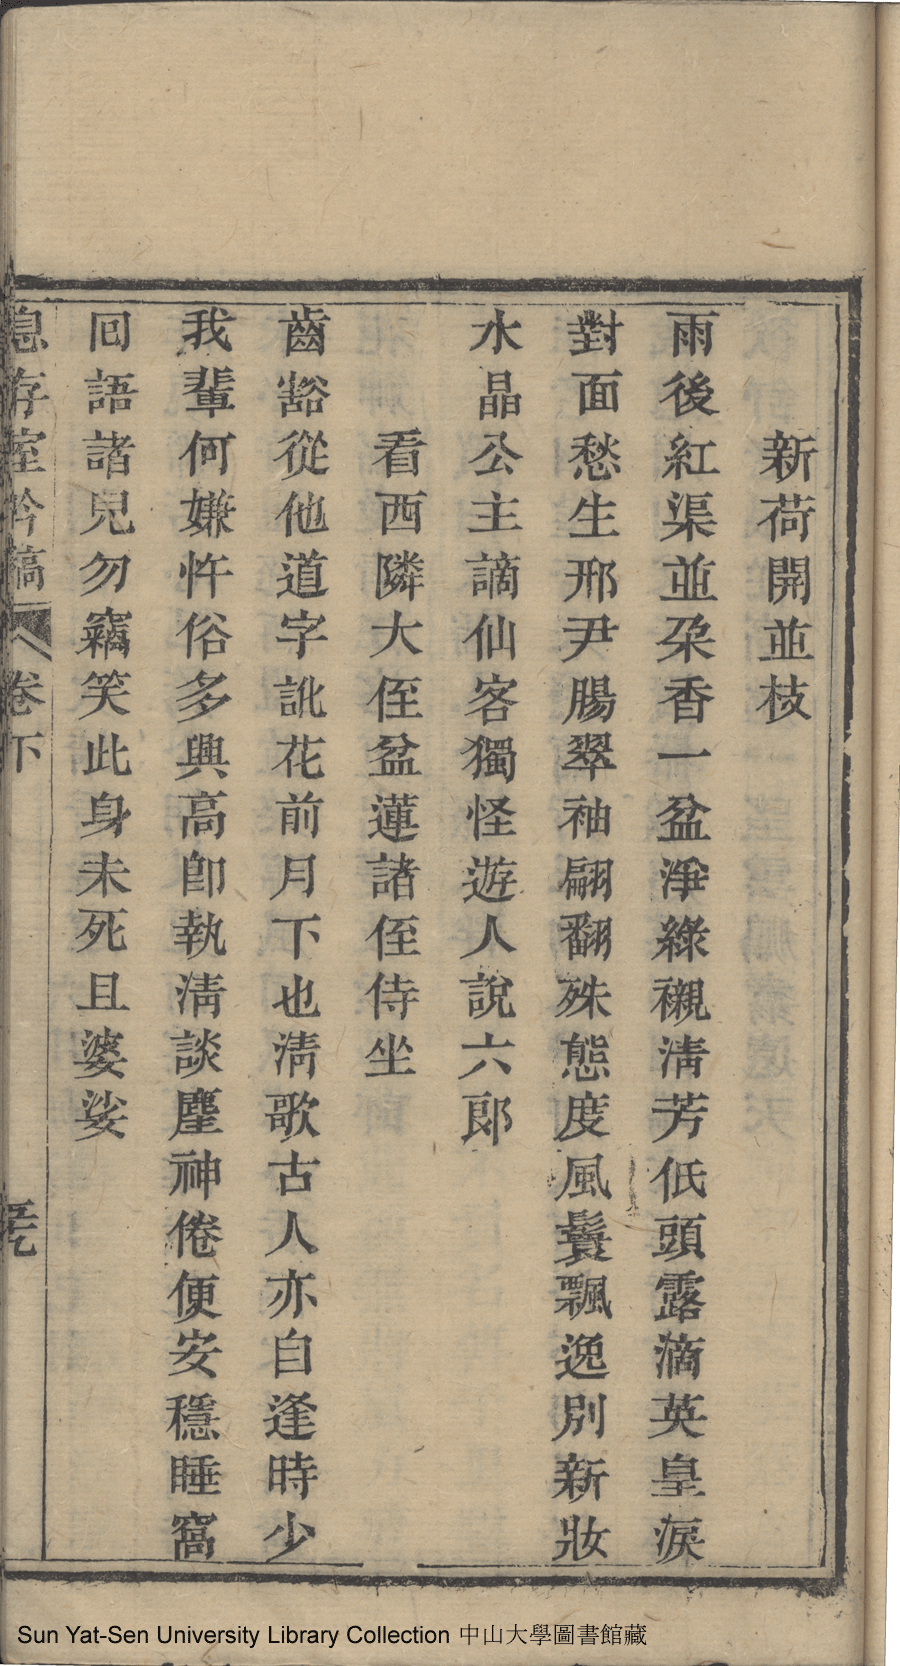 新荷開並枝
雨後紅渠並朶香一盆淨綠襯清芳低頭露滴英皇淚
對面愁生邢尹腸翠袖翩翻殊態度風鬟飄逸別新妝
水晶公主謫仙客獨怪遊人說六郞
看西隣大侄盆蓮諸侄侍坐
齒豁從他道字訛花前月下也淸歌古人亦自逢時少
我輩何嫌忤俗多興高卽執淸談麈神倦便安穩睡窩
囘語諸兒勿竊笑此身未死且婆娑
息存室吟稿 卷下
Sun Yat-Sen University Library Collection 中山大學圖書館藏